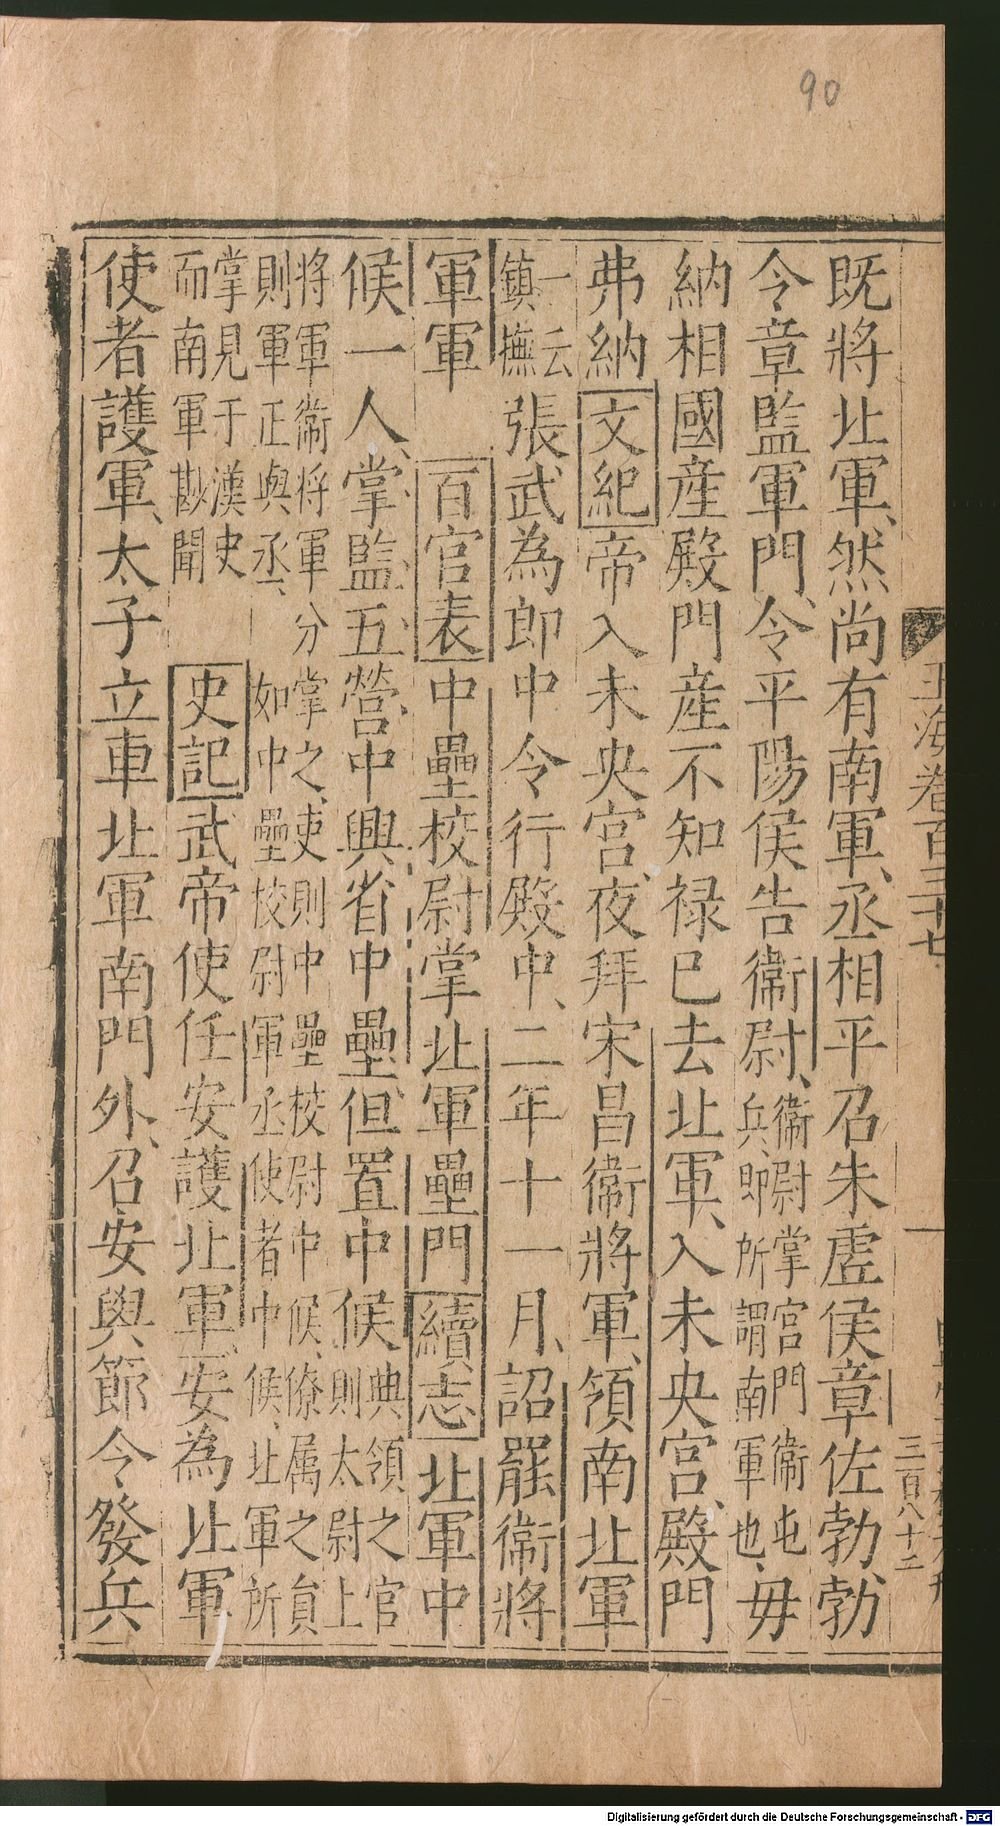 90
玉海卷百三十七
三百八十二
既將北軍、然尚有南軍、丞相平召朱虛侯章佐勃、勃
令章監軍門、令平陽侯告衛尉、衛尉掌宮門衛屯兵、即所謂南軍也、毋
納相國産殿門産不知祿已去北軍、入未央宮、殿門
弗納文紀帝入未央宮、夜拜宋昌衛將軍、領南北軍
一云鎮撫張武為郎中令行殿中、二年十一月、詔罷衛將
軍軍 百官表中壘校尉掌北軍壘門續志北軍中
候一人、掌監五營、中興省中壘、但置中候典領之官則太尉上
將軍衛將軍分掌之、吏則中壘校尉中候、僚属之貟則軍正與丞、如中壘校尉軍丞使者中候、北軍所
掌見于漢史而南軍尠聞 史記武帝使任安護北軍、安為北軍
使者護軍、太子立車北軍南門外、召安與節令發兵
Digitalisierung gefördert durch die Deutsche Forschungsgemeinschaft - DFG